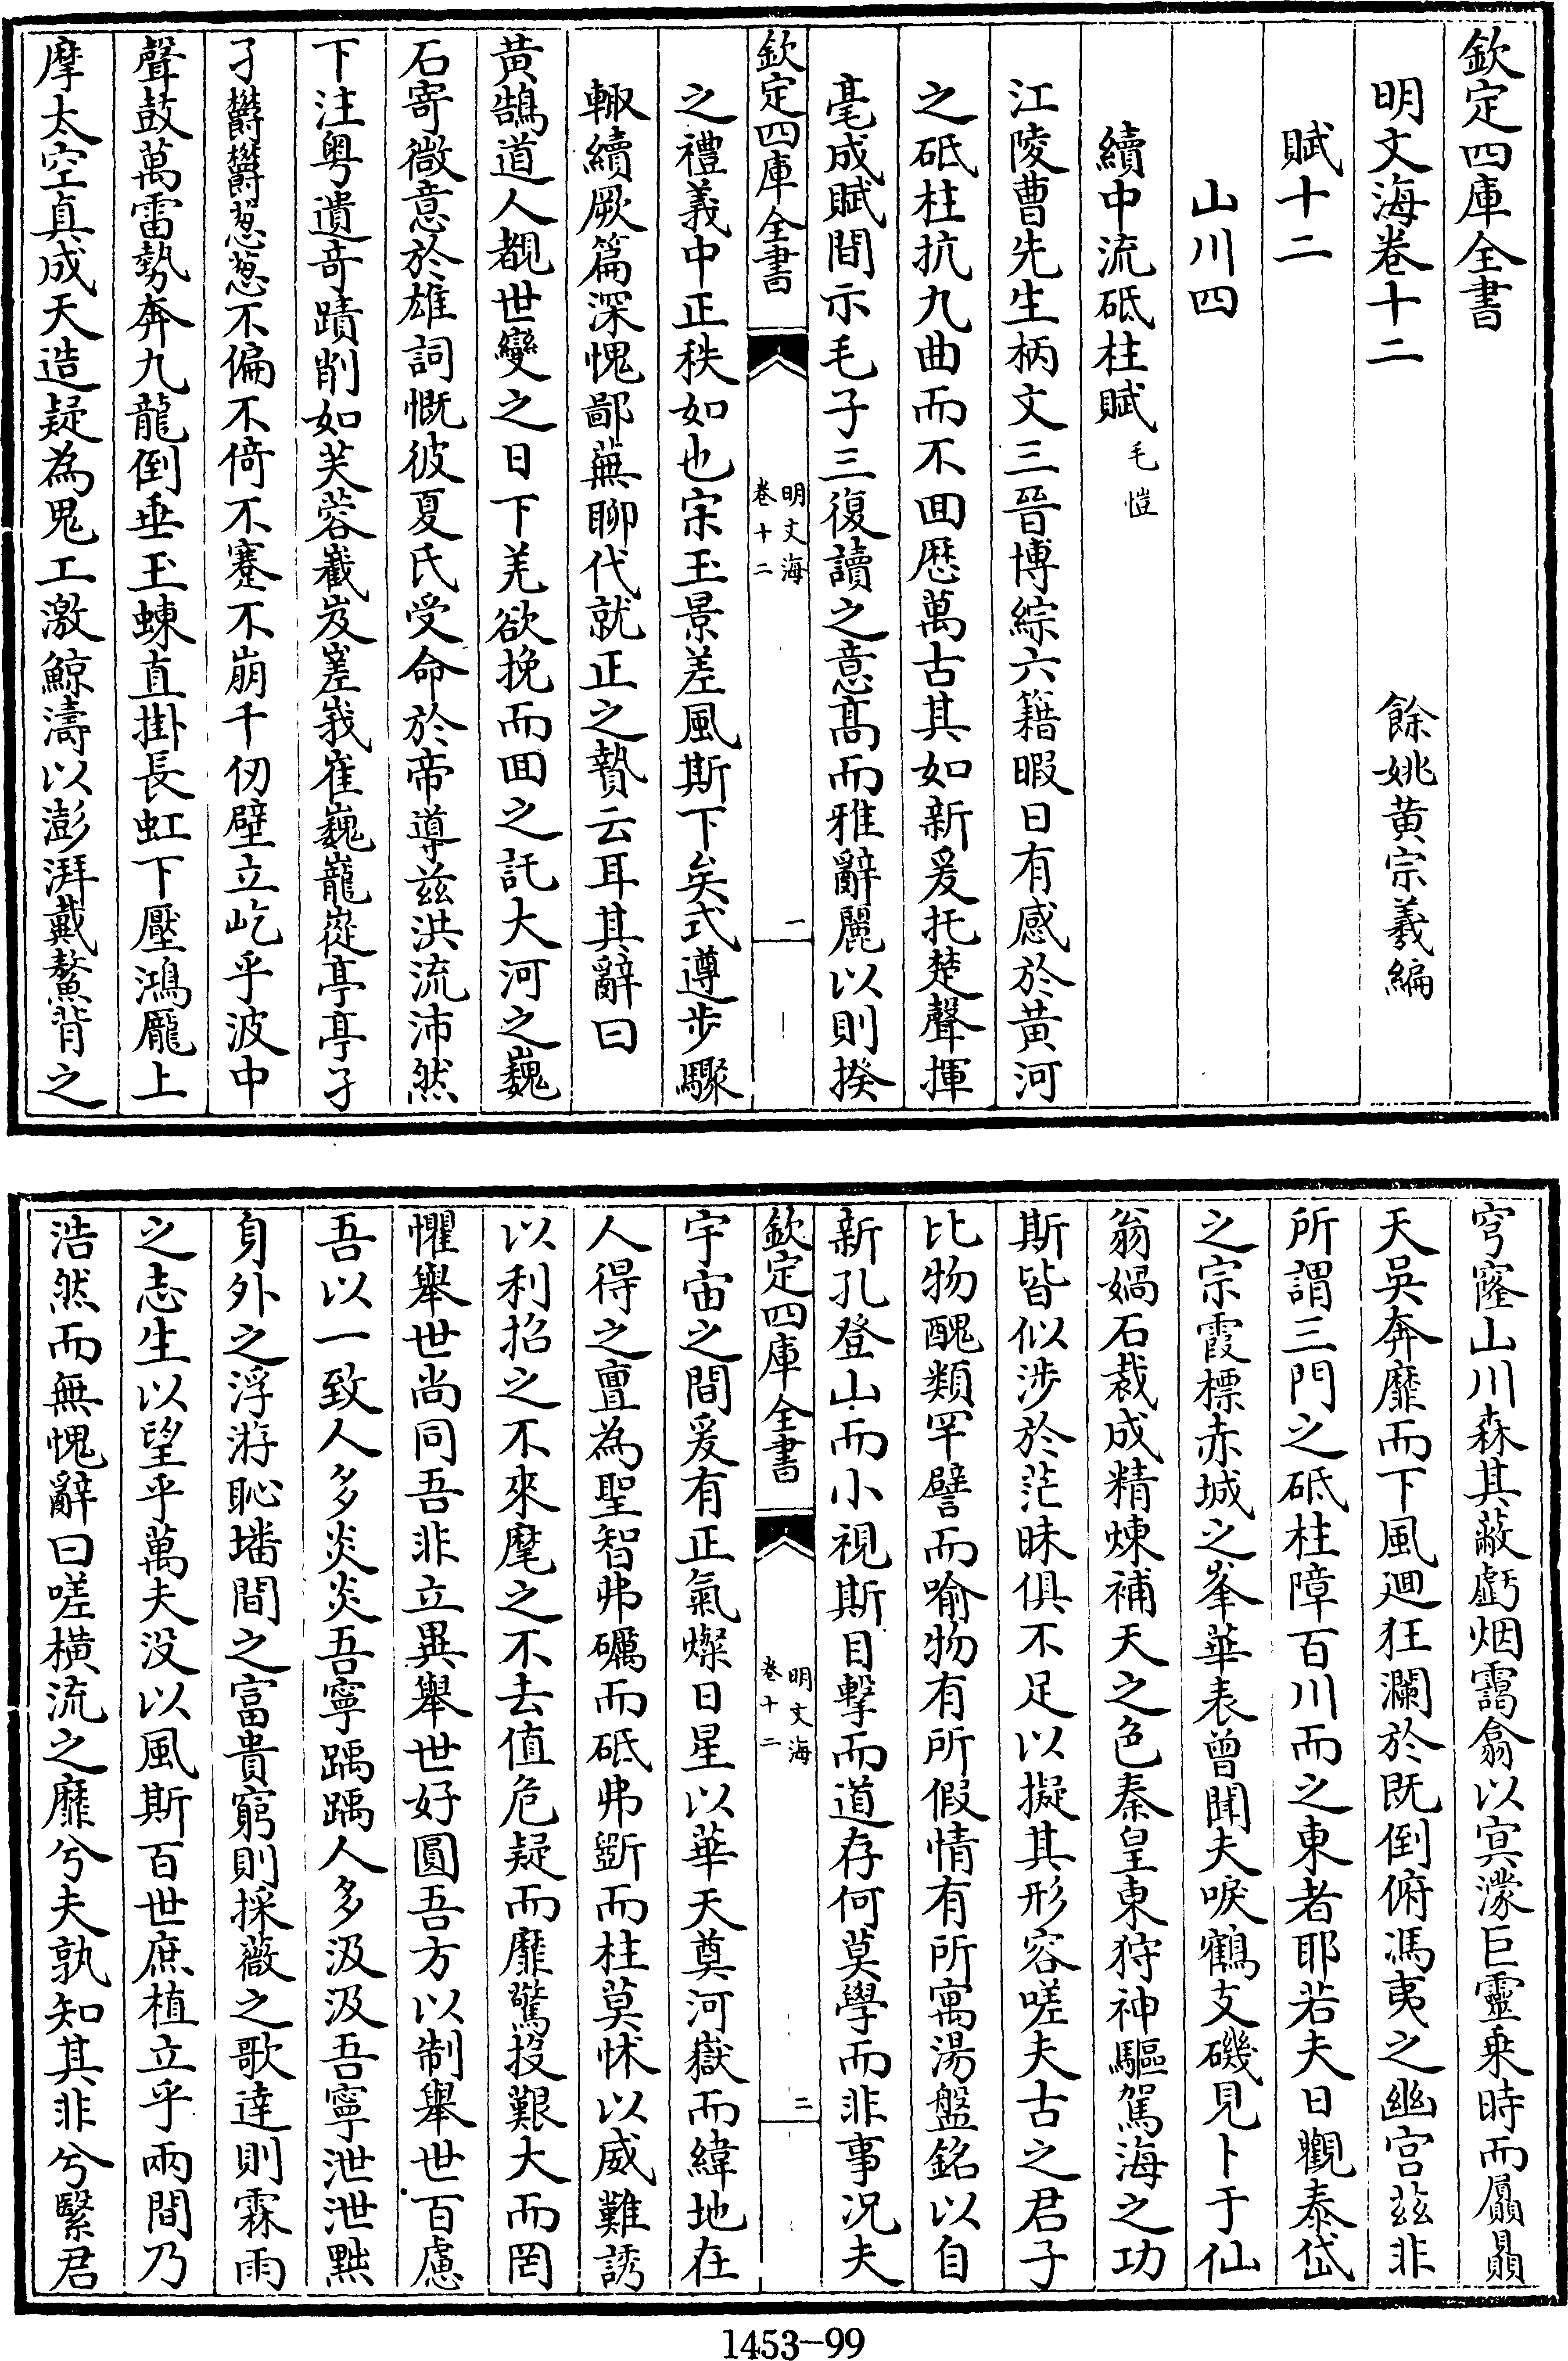 欽定四庫全書
明文海卷十二
餘姚黃宗羲編
賦十二
山川四
續中流砥柱賦 毛愷
江陵曹先生柄文三晉博綜六籍暇日有感於黃河
之砥柱抗九曲而不回歴萬古其如新爰托楚聲揮
毫成賦間示毛子三復讀之意髙而雅辭麗以則揆
欽定四庫全書
明文海
卷十二
一
之禮義中正秩如也宋玉景差風斯下矣式遵步驟
輙續厥篇深愧鄙蕪聊代就正之贄云耳其辭曰
黃鵠道人覩世變之日下羌欲挽而回之託大河之巍
石寄微意於雄詞慨彼夏氏受命於帝導兹洪流沛然
下注粤遺竒蹟削如芙蓉巀嶪嵳峩崔巍巃嵸亭亭孑
孑欝欝葱葱不偏不倚不蹇不崩千仞壁立屹乎波中
聲鼓萬雷勢奔九龍倒垂玉蝀直掛長虹下壓鴻龎上
摩太空真成天造疑為鬼工激鯨濤以澎湃戴鰲背之
穹窿山川森其蔽虧烟靄翕以㝠濛巨靈乗時而屭贔
天吳奔靡而下風廻狂瀾於既倒俯馮夷之幽宫兹非
所謂三門之砥柱障百川而之東者耶若夫日觀泰岱
之宗霞標赤城之峯華表曽聞夫唳鶴支磯見卜于仙
翁媧石裁成精煉補天之色秦皇東狩神驅駕海之功
斯皆似涉於茫昧俱不足以擬其形容嗟夫古之君子
比物醜類罕譬而喻物有所假情有所寓湯盤銘以自
新孔登山而小視斯目擊而道存何莫學而非事况夫
欽定四庫全書
明文海
卷十二
二
宇宙之間爰有正氣燦日星以華天奠河嶽而緯地在
人得之亶為聖智弗礪而砥弗斵而柱莫怵以威難誘
以利招之不來麾之不去值危疑而靡驚投艱大而罔
懼舉世尚同吾非立異舉世好圓吾方以制舉世百慮
吾以一致人多炎炎吾寧踽踽人多汲汲吾寧泄泄㸃
身外之浮游恥墦間之富貴窮則採薇之歌達則霖雨
之志生以望乎萬夫没以風斯百世庶植立乎兩間乃
浩然而無愧辭曰嗟横流之靡兮夫孰知其非兮兮繄君
1453-99